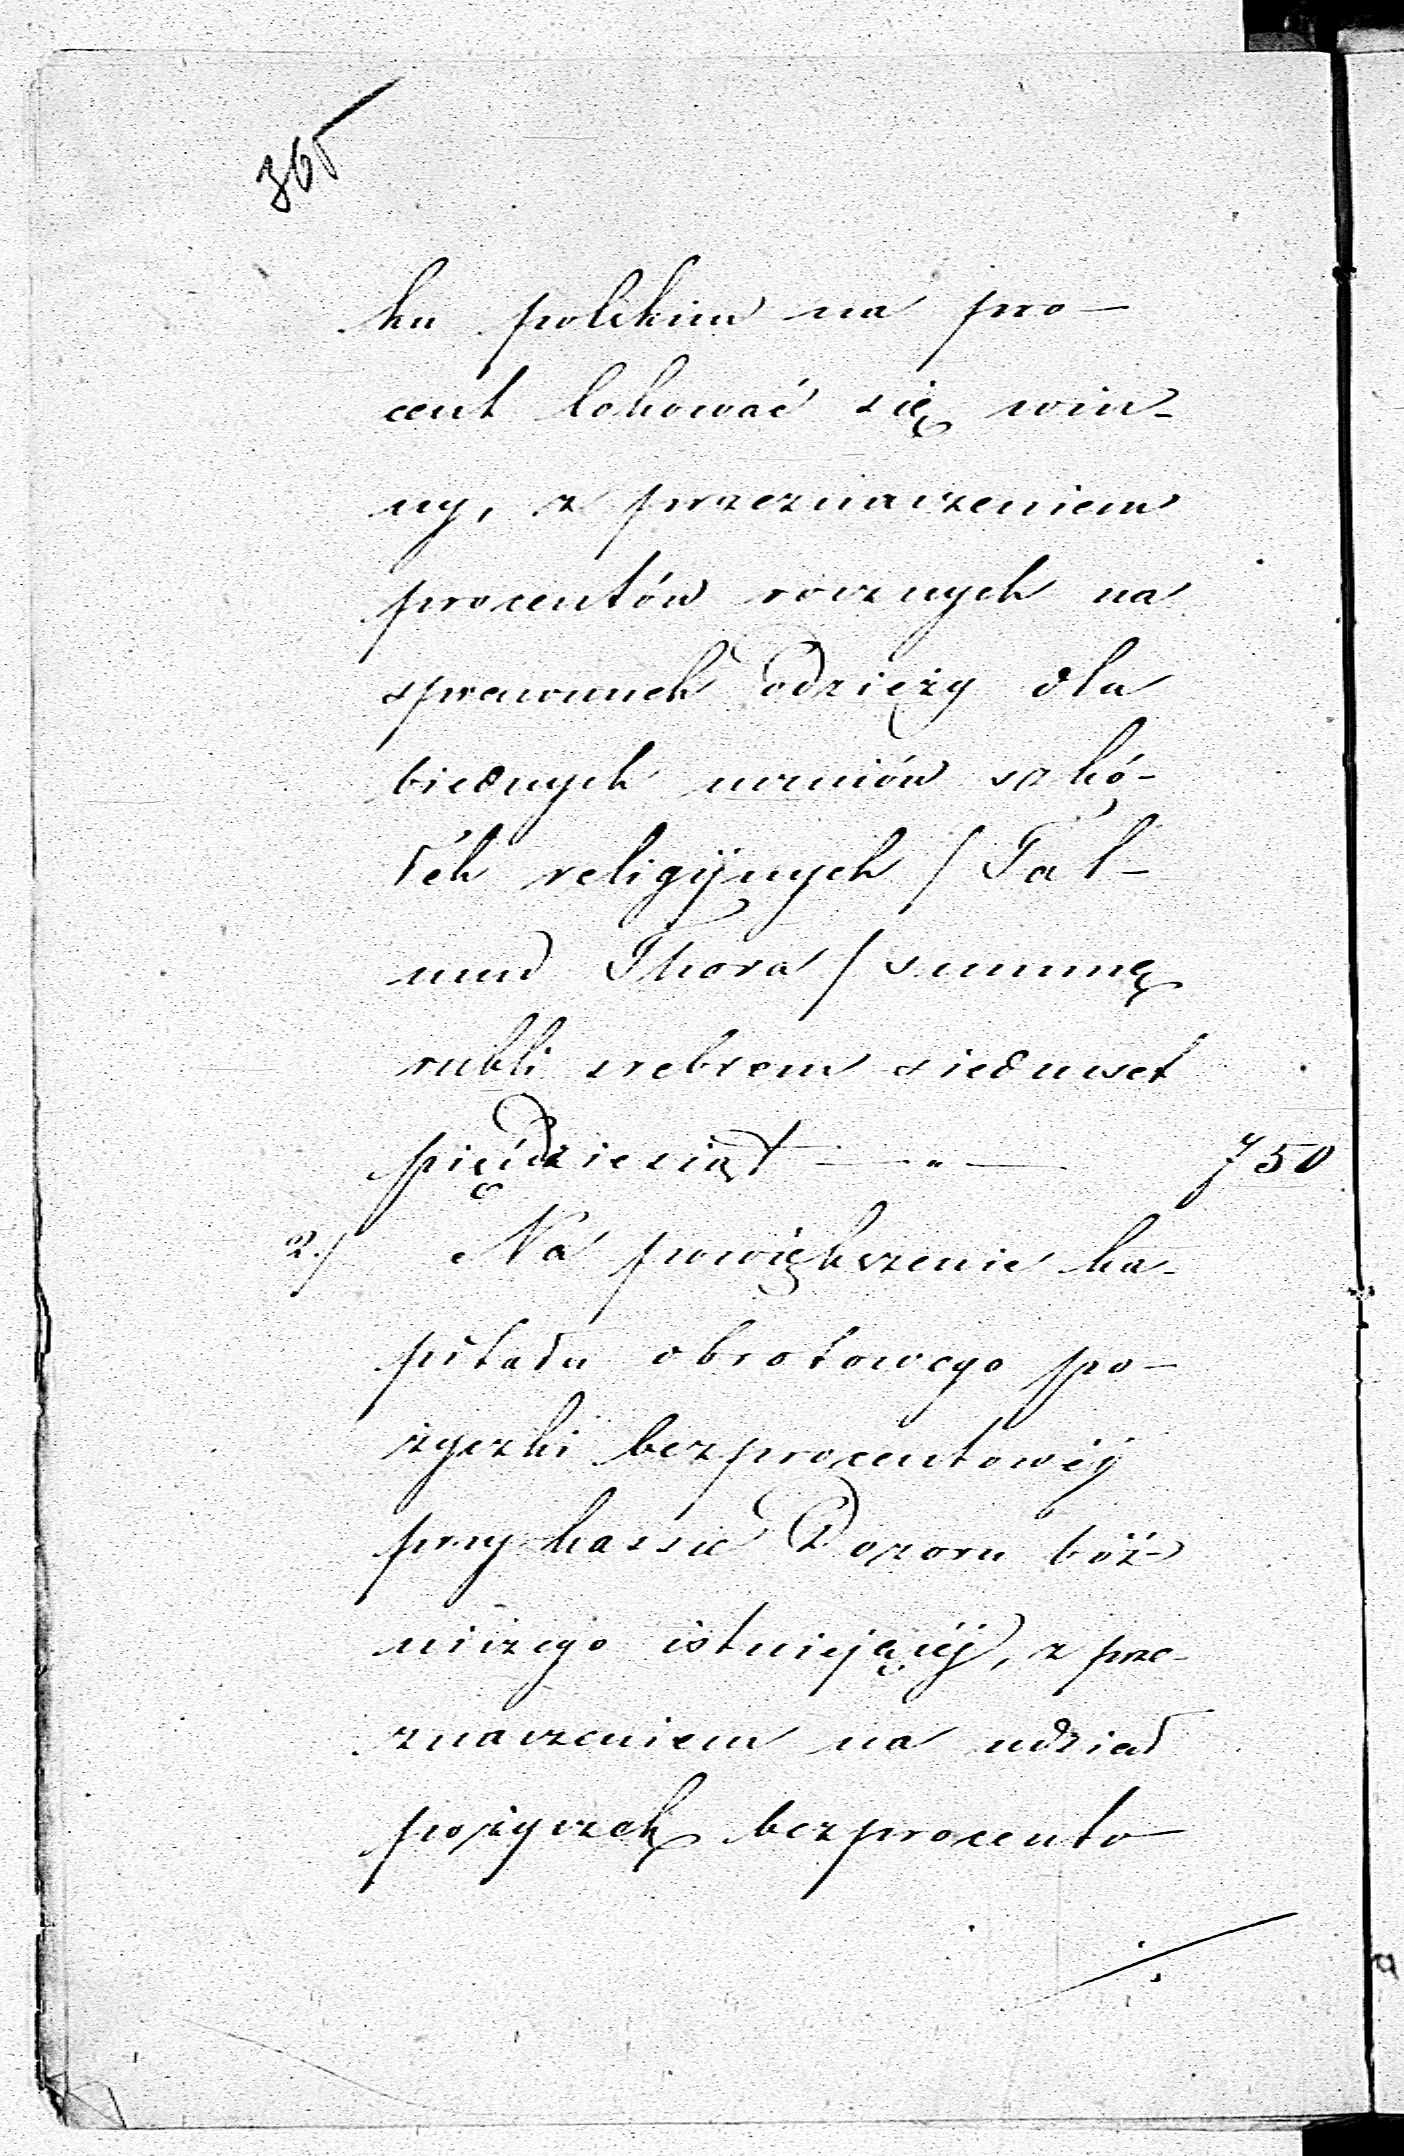 365
ku polskim na pro-
cent lokować się win-
ny, z przeznaczeniem
procentów rocznych na
sprawunek odzięży dla
biednych uczniów szkó-
łek religijnych / Tal-
mud Thora / summę
rubli srebrem siedmset
pięćdziesiąt — " — 750
2./ Na powiększenie ka-
pitału obrotowego po-
życzki bezprocentowéj
przy kassie Dozoru bóż-
niczego istniejącéj, z prze-
znaczeniem na udział
pożyczek bezprocento-